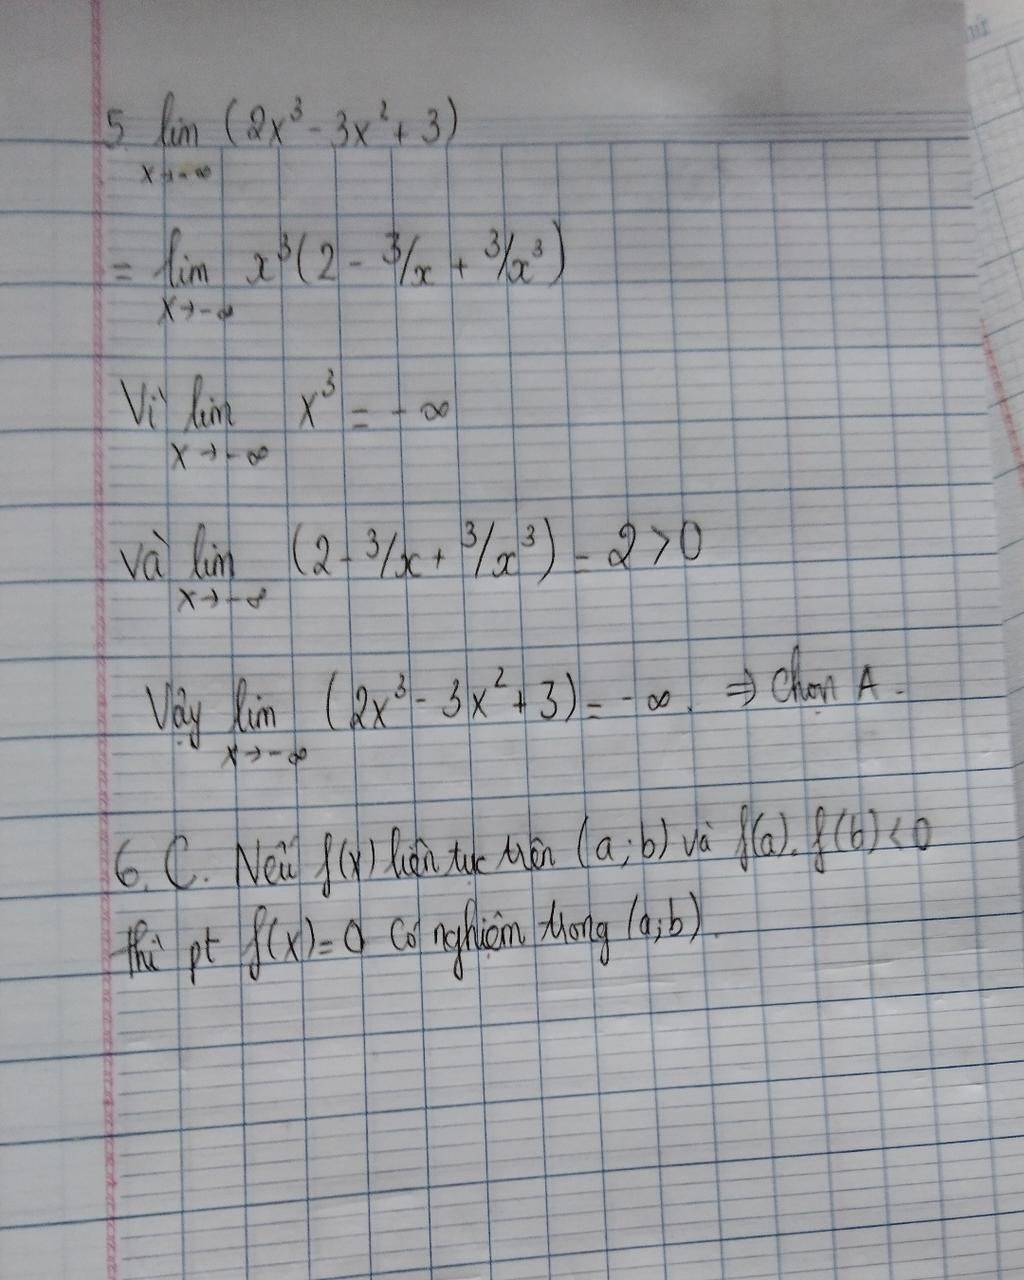 5. lim (2x³ - 3x² + 3)
x→-∞
= lim x³(2 - 3/x + 3/x³)
x→-∞
Vì lim x³ = -∞
x→-∞
và lim (2 - 3/x + 3/x³) = 2 > 0
x→-∞
Vậy lim (2x³ - 3x² + 3) = -∞. ⇒ Chọn A.
x→-∞
6. C. Nếu f(x) liên tục trên (a;b) và f(a). f(b) < 0
thì pt f(x) = 0 có nghiệm trong (a;b).